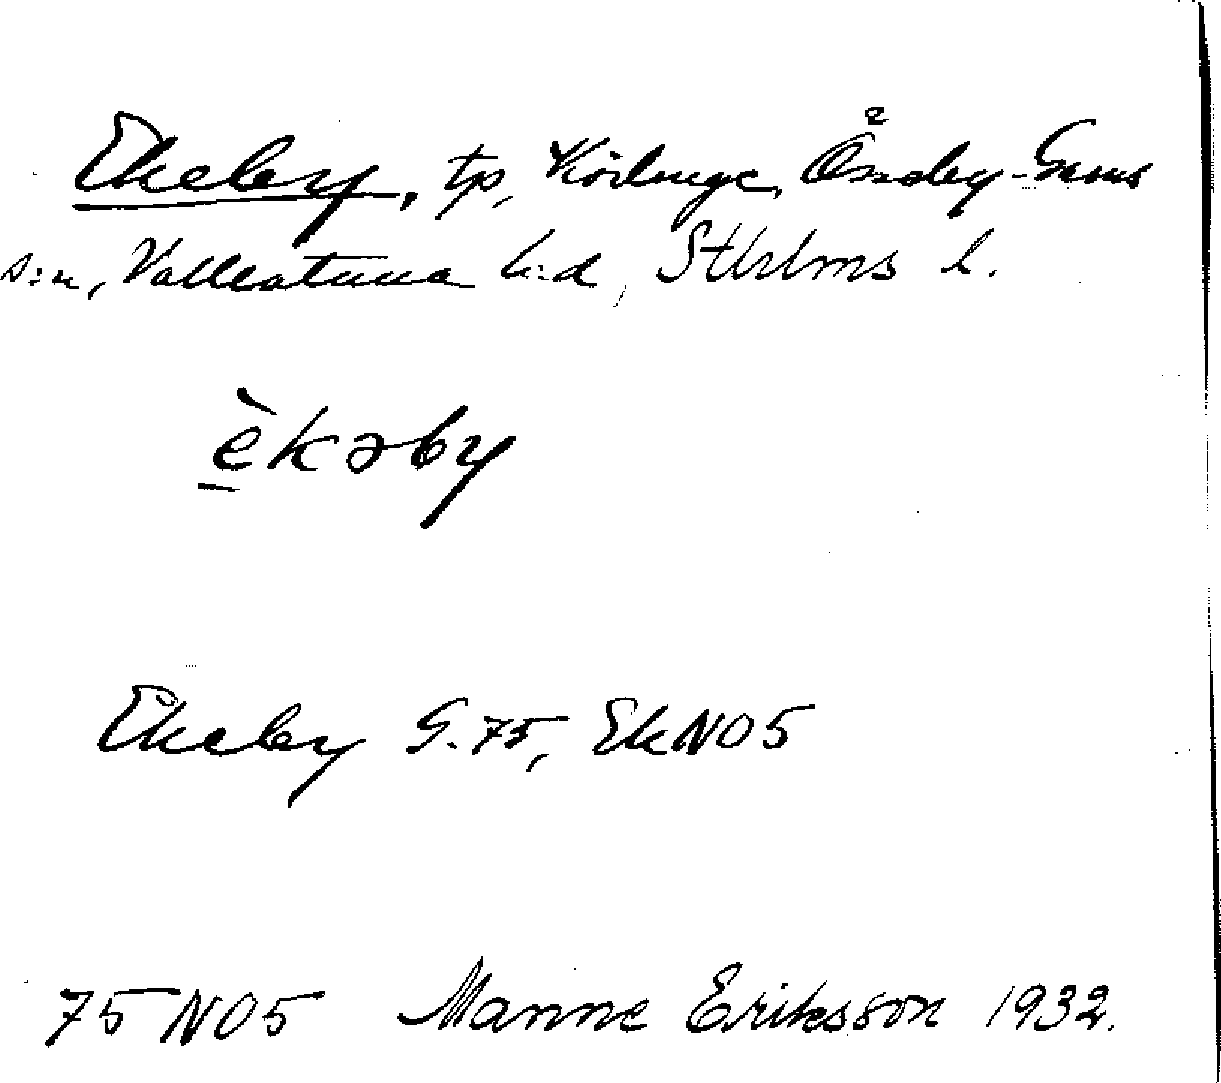 Ekeby, tp, Össeby-Garns
s:n, Vallentuna h:d, Sthlms l.
è̱kəby
Ekeby G. 75, Ek NO 5
75 NO 5 Manne Eriksson 1932.